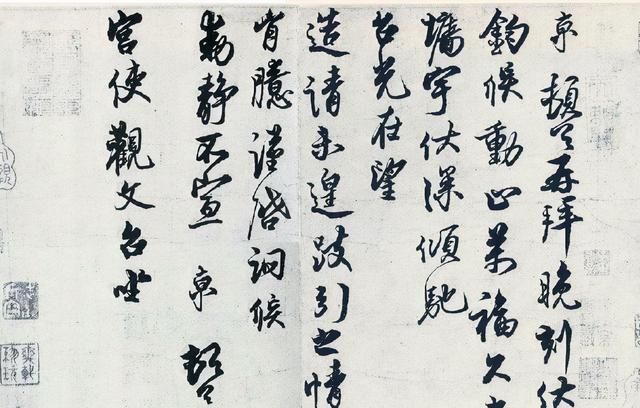 京 頓首再拜晚刻伏
鈞候動止萬福久
墉宇伏深傾馳
台光在望
造請未遑跂引之情
胷臆謹啓詢候
動靜不宣 京 頓首
宮使觀文台坐